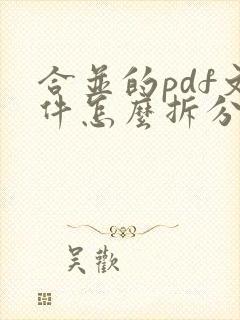 合並的pdf文
件怎麼拆分
吳歡